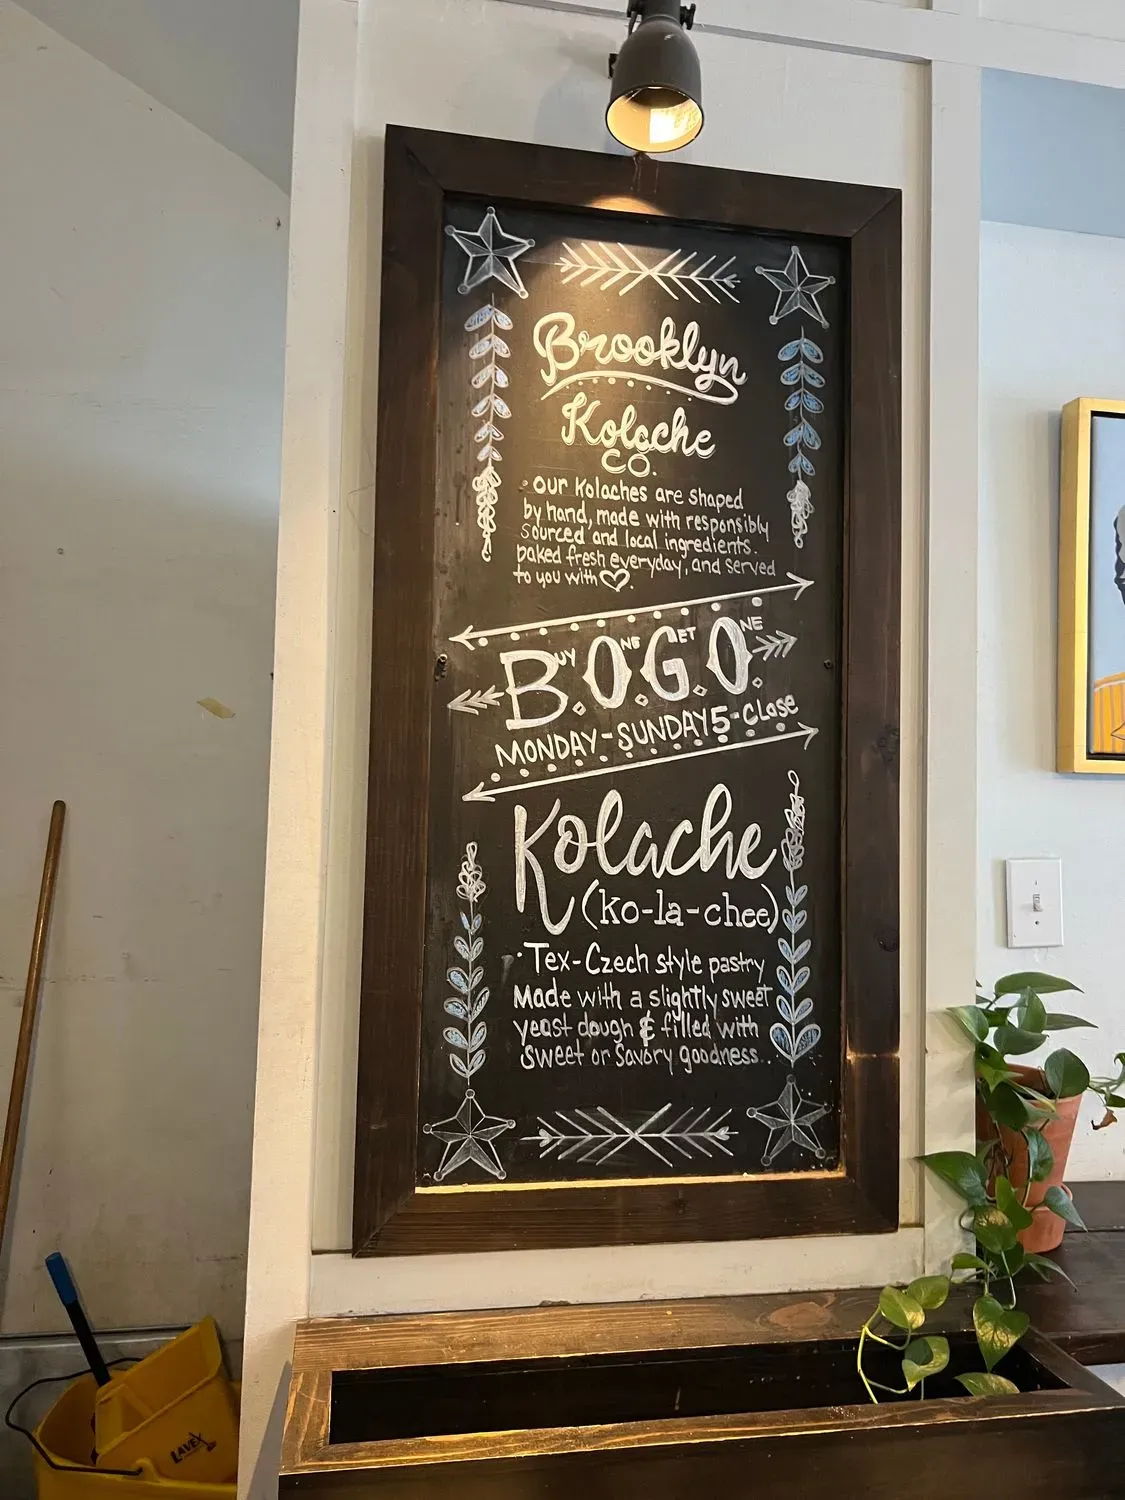 Brooklyn
Kolache
CO.
· our Kolaches are shaped
by hand, made with responsibly
sourced and local ingredients.
baked fresh everyday, and served
to you with ♡.
BUY.ONE.GET.ONE.
MONDAY-SUNDAY 5-CLose
Kolache
(ko-la-chee)
·Tex-Czech style pastry
Made with a slightly sweet
yeast dough & filled with
sweet or savory goodness..
LAVEX